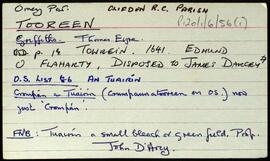 Omey Par. CLIFDEN R.C. PARISH
TOOREEN P120/1/6/56(i)
Griffiths: Thomas Eyre.
BD p. 14 TOWREIN. 1641. EDMUND
O FLAHARTY, DISPOSED TO JAMES DARCEY
O.S. LIST 86 AN TUAIRÍN
Crompán a Tuairín (Crumpaunatooreen on OS.) now
just 'Crompán.'
FNB: Tuairín a small bleach or green field. Prop.
John D'Arcy.